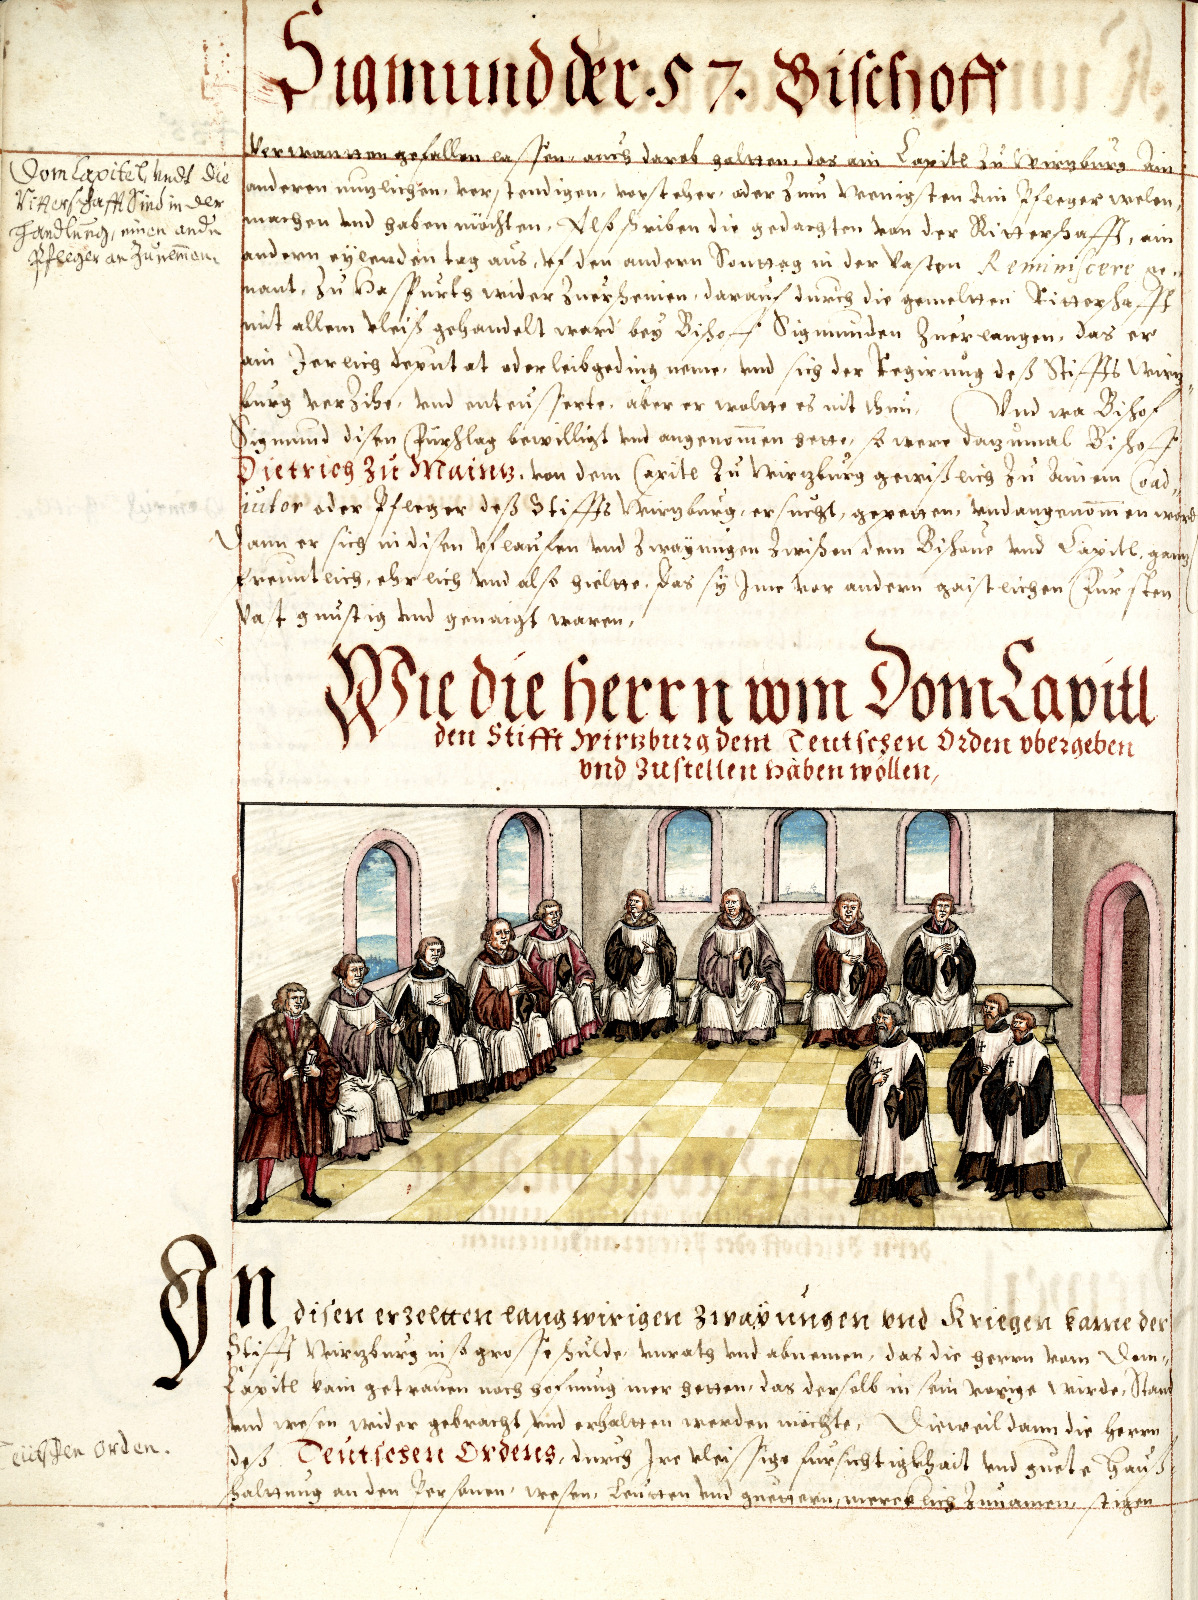 Sigmund der .57. Bischoff
Verwanten gefallen lassen, auch darob haltten, das ain Capitl zu Wirtzburg ain
anderen nutzlichen, verstendigen, vorsteher, oder zum wenigsten ain Pfleger welen,
machen vnd haben möchten, Also schriben die gedachten von der Ritterschafft, ain
andern eylenden tag aus, vf den andern Sonttag in der Vasten Reminiscere ge-
nant, zu Hasfurth wider zuerscheinen, darauf durch die gemeltten Ritterschafft
mit allem vleis gehandelt ward bey Bischoff Sigmunden zuerlangen, das er
ain Jerlich deputat oder leibgeding neme, vnd sich der Regirung deß Stiffts Wirtz-
burg verzihe, vnd enteusserte, aber er woltte es nit thun, Vnd wa Bischof
Sigmund disen Fürschlag bewilligt vnd angenomen hette, so were dazumal Bischoff
Dietrich zu Maintz, von dem Capitl zu Wirtzburg gewißlich zu ainem Coad-
iutor oder Pfleger deß Stiffts Wirtzburg, ersucht, gepetten, vnd angenomen word
Dann er sich in disen vflaufen vnd zwayungen zwischen dem Bischoue vnd Capitl, gantz
freuntlich, ehrlich vnd also hieltte, das sy Jme vor andern gaistlichen Fürsten
vast gnustig vnd genaigt waren,
DomCapitel vndt die
Ritterschafft Sind in der
Handlung, einen andn
Pfleger anzunemen.
Wie die Herrn vom DomCapitl
den Stifft Wirtzburg dem Teutschen Orden vbergeben
vnd zustellen haben wöllen,
IN disen erzeltten langwirigen zwayungen vnd Kriegen kame der
Stifft Wirtzburg in so grosse schulde, vnrath vnd abnemen, das die herrn vom Dom-
Capitl kain getrauen noch hofnung mer hetten, das derselb in sein vorige wirde, Stand
vnd wesen wider gebracht vnd erhaltten werden möchte, Dieweil dann die Herrn
deß Teutschen Ordens, durch Jre vleissige fursichtigkhait vnd guete Hauß-
halttung an den Personen, wesen, Leutten vnd guettern, mercklich zunamen, stigen
Teutschen Orden.